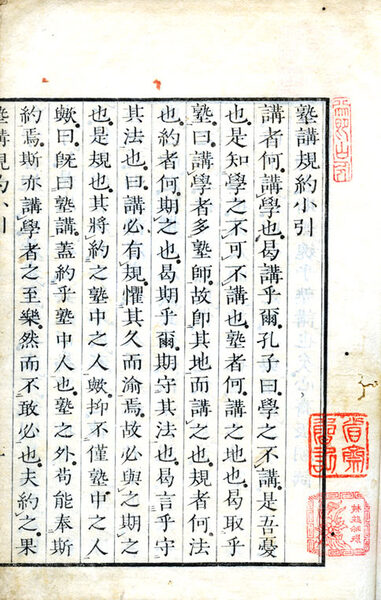 塾講規約小引
講者何。講學也。曷講乎爾。孔子曰。學之不講。是吾憂
也。是知學之不可不講也。塾者何。講之地也。曷取乎
塾。曰。講學者多塾師。故卽其地而講之也。規者何。法
也。約者何。期之也。曷期乎爾。期守其法也。曷言乎守
其法也。曰。講必有規。懼其久而渝焉。故必與之期之
也。是規也。其將約之塾中之人歟。抑不僅塾中之人
歟。曰。旣曰塾講。蓋約乎塾中人也。塾之外。苟能奉斯
約焉。斯亦講學者之至樂。然而不敢必也。夫約之果
塾講規約小引